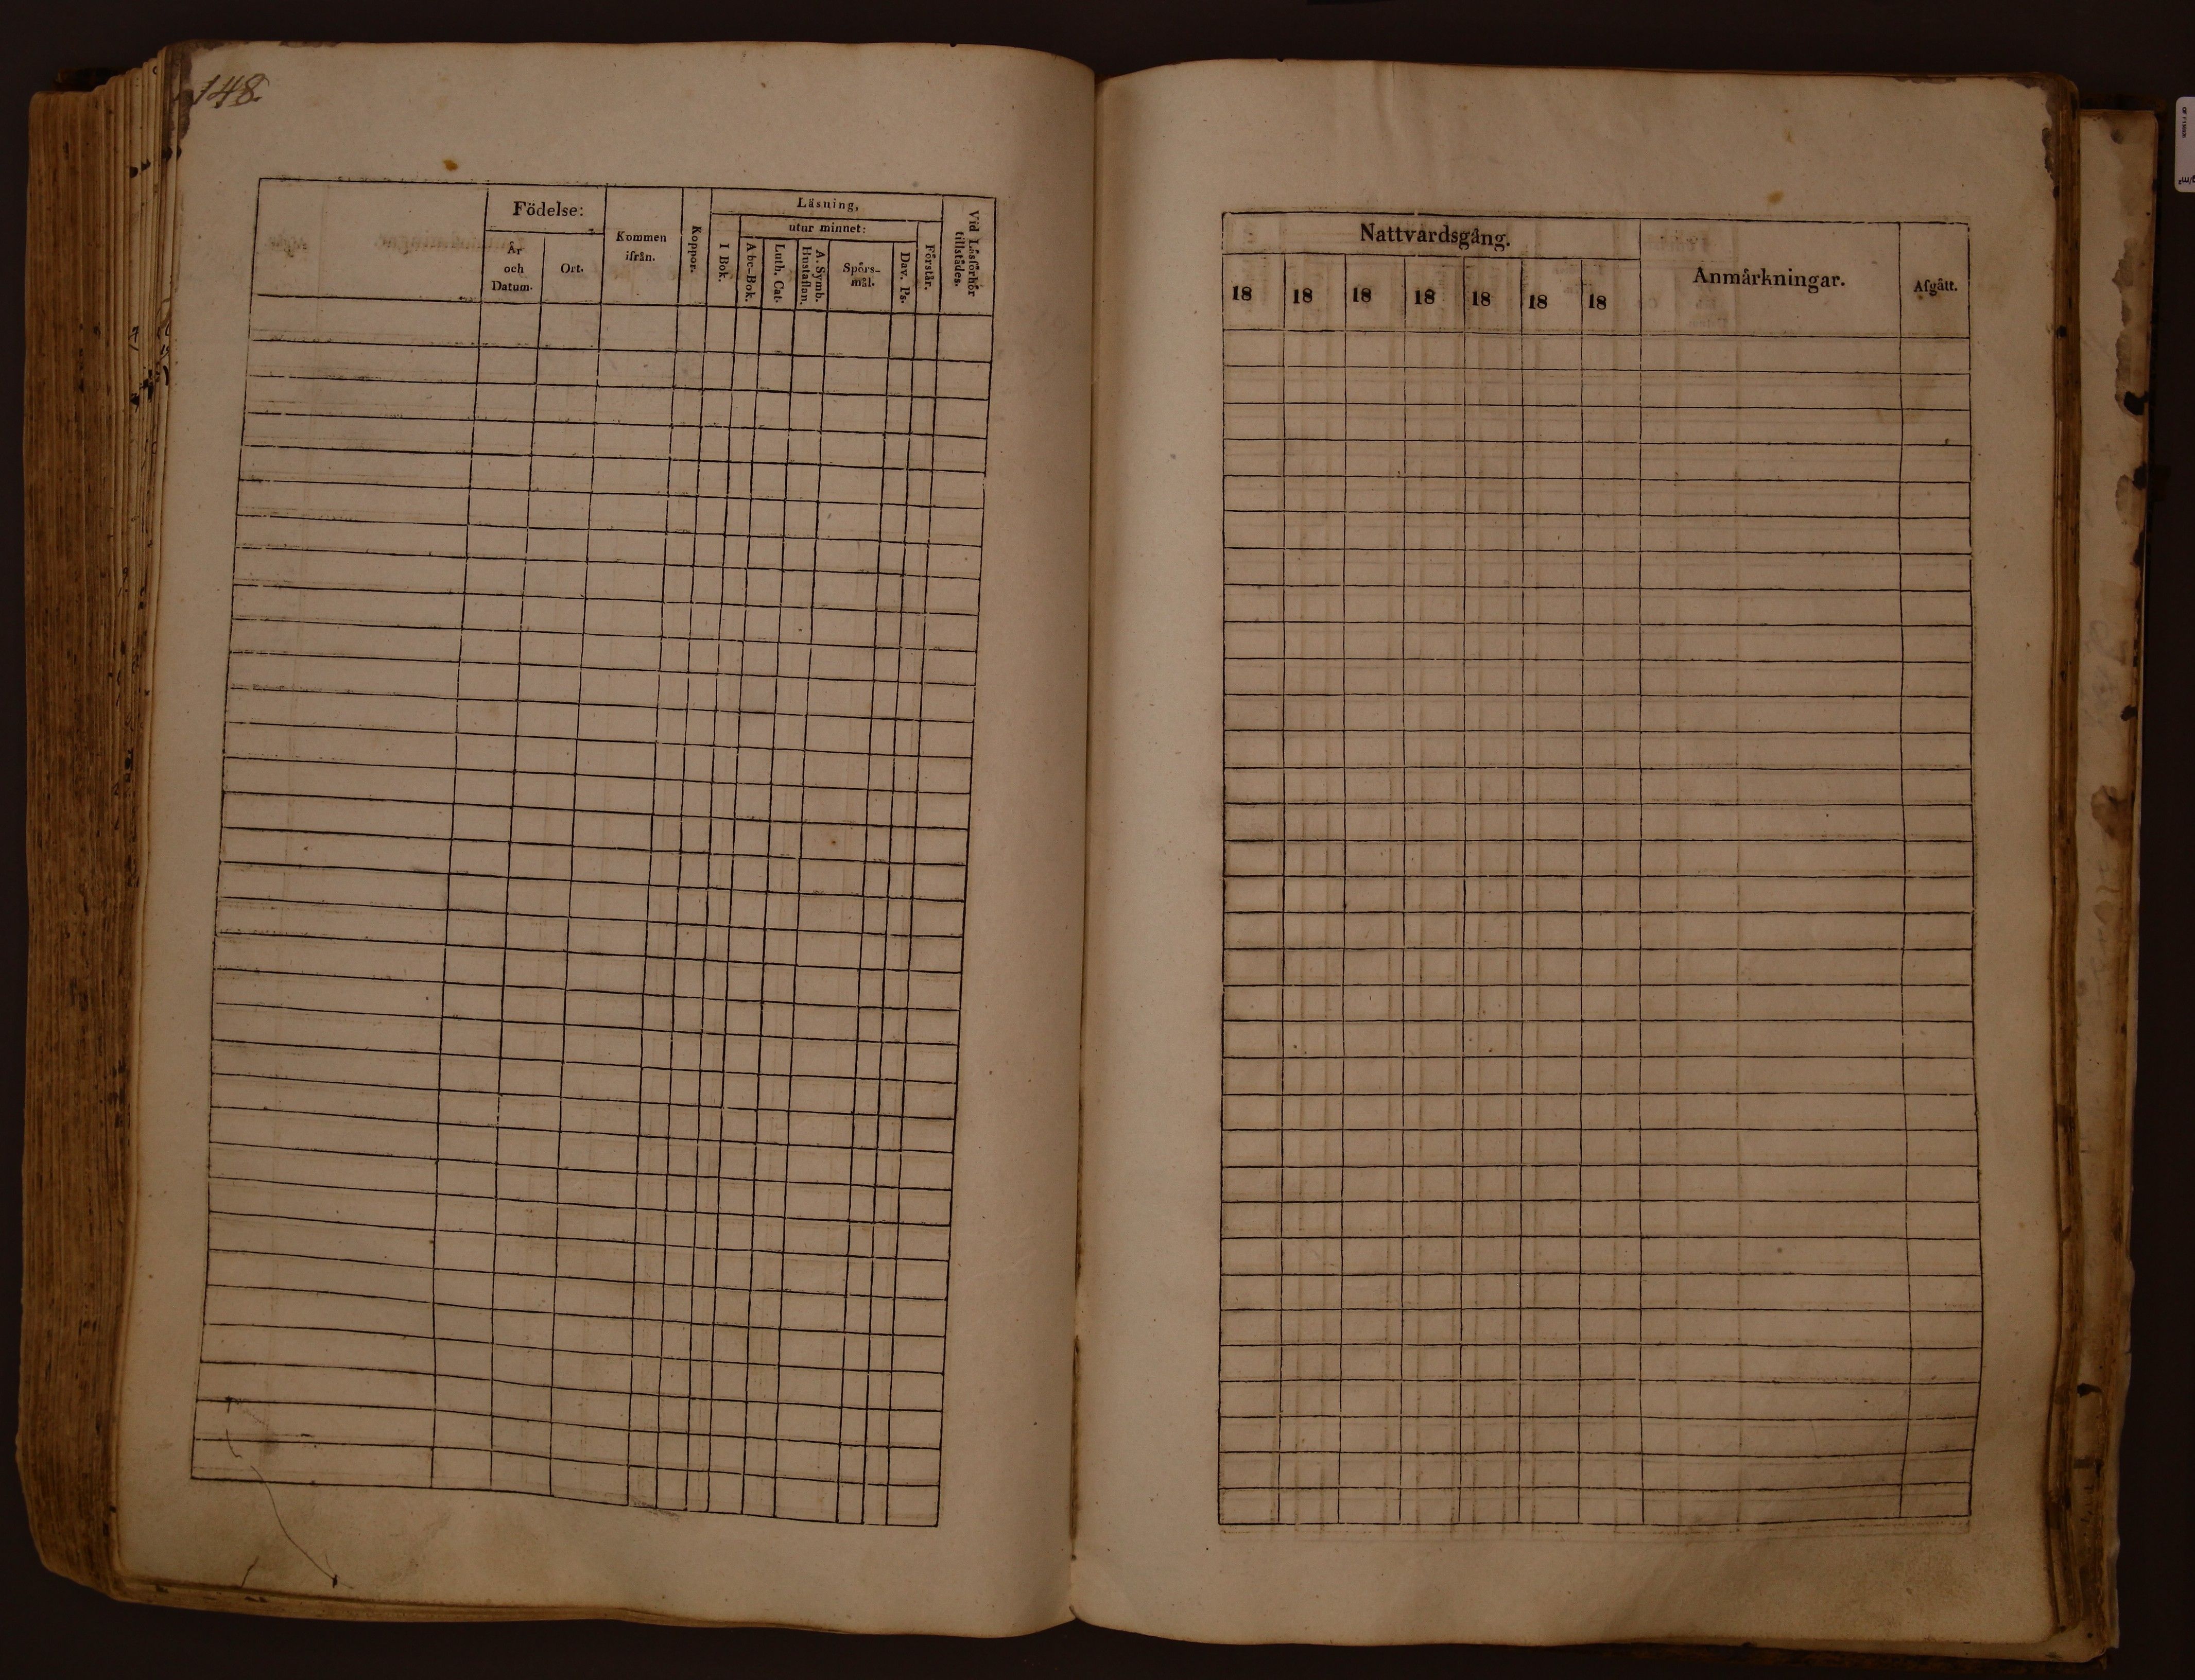 148.
Födelse:
År
och
Datum.
Ort.
Kommen
ifrån.
Koppor.
Läsning,
I Bok.
utur minnet:
Abc-Bok.
Luth. Cat.
A. Symb.
Hustaflan.
Spörs-
mål.
Dav. Ps.
Förstår.
Vid Läsförhör
tillstädes.
Nattvardsgång.
18 18 18 18 18 18 18
Anmärkningar.
Afgått.